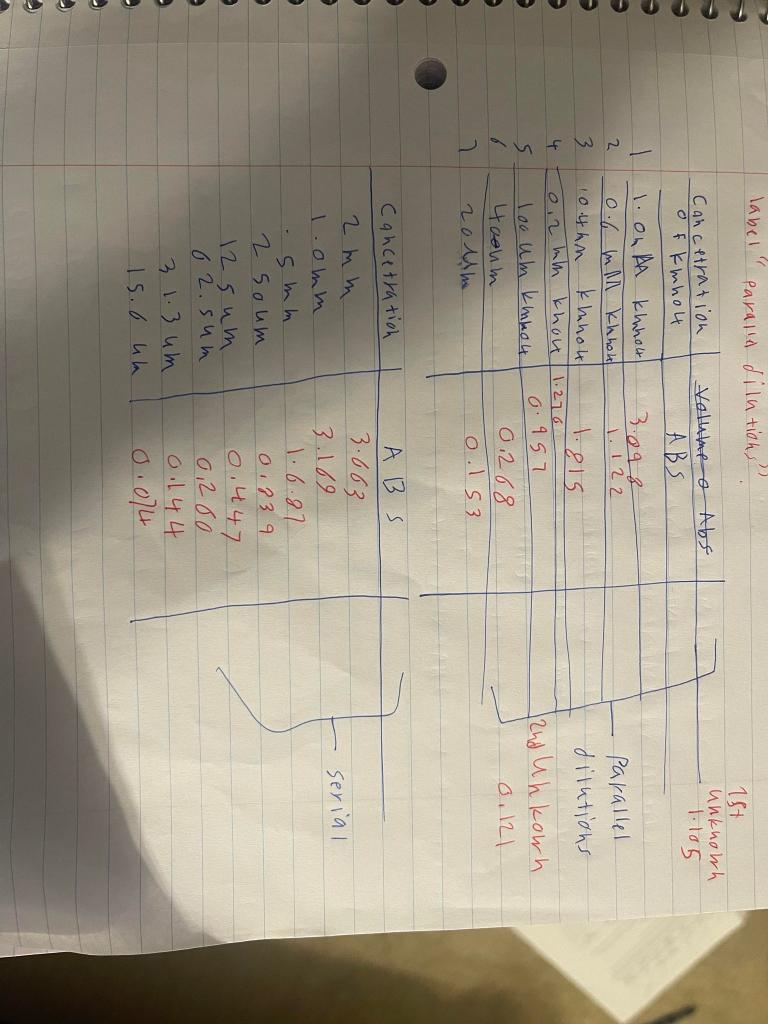 label " Paralla dilutions".
1st
unknown
1.105
Concetration of kmno4 | Volume o Abs
ABS
1 1.0mM kmno4 3.098
2 0.6 mM kmno4 1.122
3 0.4mm kmno4 1.815
4 0.2 mm kno4 1.276
5 100um kmno4 0.957
6 400um 0.268
7 20um 0.153
Parallel
dilutions
2nd Unkown
0.121
Concetration ABS
2 mm 3.663
1.0mm 3.169
.5mm 1.687
250um 0.839
125um 0.447
62.5um 0.260
31.3um 0.144
15.6 um 0.074
serial